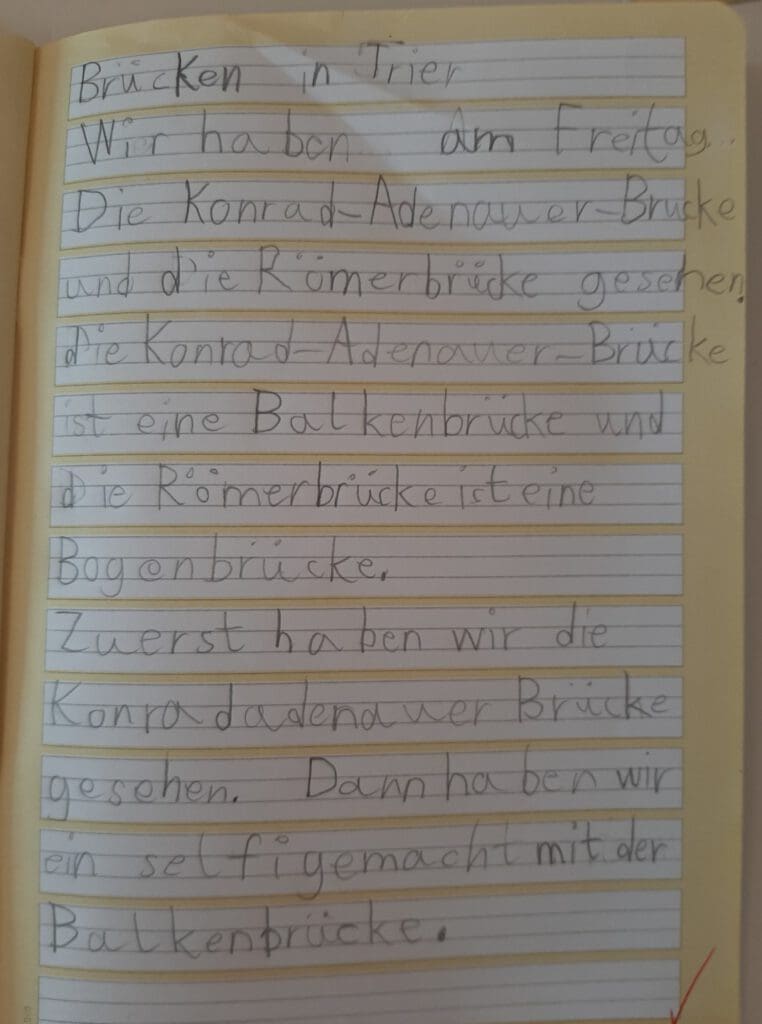 Brücken in Trier
Wir haben am Freitag
Die Konrad-Adenauer-Brucke
und die Römerbrücke gesehen.
die Konrad-Adenauer-Brücke
ist eine Balkenbrücke und
die Römerbrücke ist eine
Bogenbrücke.
Zuerst haben wir die
Konradadenauer Brücke
gesehen. Dann haben wir
ein selfi gemacht mit der
Balkenbrücke.